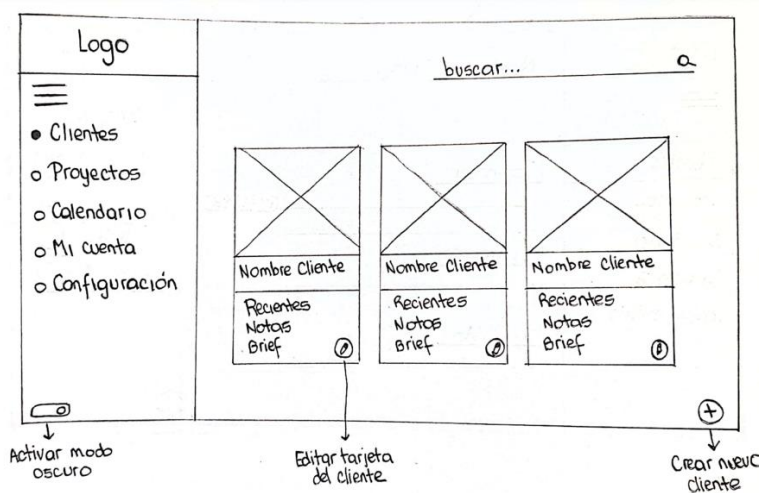 Logo
buscar...
Clientes
Proyectos
Calendario
Mi cuenta
Configuración
Nombre Cliente
Recientes
Notas
Brief
Nombre Cliente
Recientes
Notas
Brief
Nombre Cliente
Recientes
Notas
Brief
Activar modo
oscuro
Editar tarjeta
del cliente
Crear nuevo
cliente